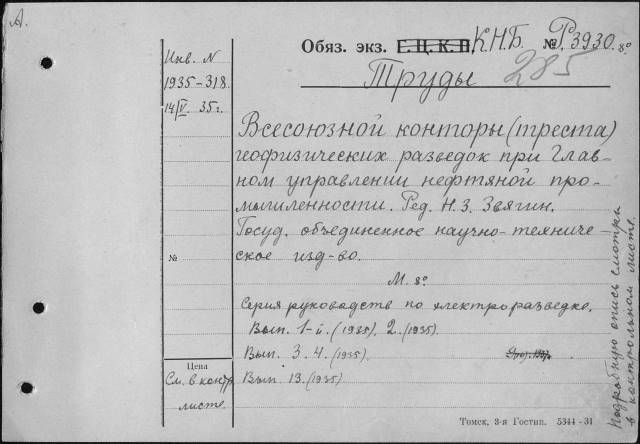 А.
Обяз. экз. Г.Ц.К.П. К.Н.Б. № Р3930. 8º
285
Труды
Инв. N
1935-318
14/V. 35 г.
Всесоюзной конторы (треста)
геофизических разведок при Глав-
ном управлении нефтяной про-
мышленности. Ред. Н.З. Звягин.
Госуд. объединенное научно-техниче-
ское изд-во.
№
М. 8º
Серия руководств по электроразведке.
Вып. 1-й. (1935). 2. (1935).
Вып. 3. 4. (1935).
Вып. 13. (1935)
Цена
См. в контр.
листе.
Подробную опись смотри
в контрольном листе.
Томск, 3-я Гостип. 5344-31